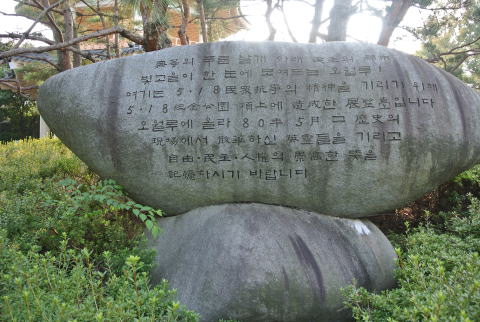 無等의 푸른 날개 아래 펼쳐진
빛고을이 한 눈에 보여지는 오월루!
여기는 5·18民衆抗爭의 精神을 기리기 위해
5·18紀念公園 頂上에 造成한 展望臺입니다
오월루에 올라 80年 5月 그 歷史의
現場에서 散華하신 英靈들을 기리고
自由·民主·人權의 崇高한 뜻을
記憶하시기 바랍니다